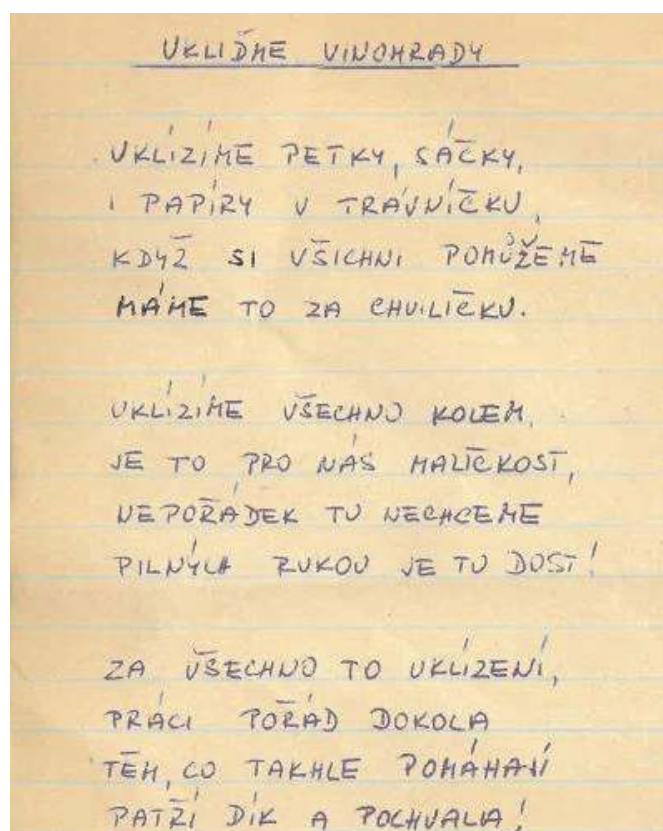 UKLIĎME VINOHRADY
UKLÍZÍME PETKY, SÁČKY,
I PAPÍRY V TRÁVNÍČKU,
KDYŽ SI VŠICHNI POMŮŽEME
MÁME TO ZA CHVILIČKU.
UKLÍZÍME VŠECHNO KOLEM,
JE TO PRO NÁS MALIČKOST,
NEPOŘÁDEK TU NECHCEME
PILNÝCH RUKOU JE TU DOST!
ZA VŠECHNO TO UKLÍZENÍ,
PRÁCI POŘÁD DOKOLA
TĚM, CO TAKHLE POMÁHAJÍ
PATŘÍ DÍK A POCHVALA!